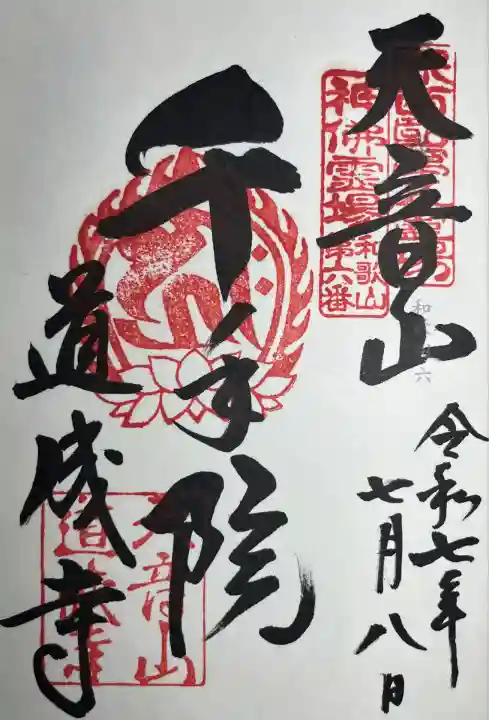 天音山
令和七年
七月八日
千手院
道成寺
神佛霊場
和歌山
第六番
天音山
道成寺